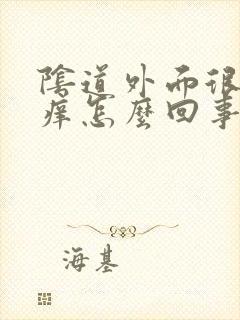 陰道外而很
痒怎麼回事
海基